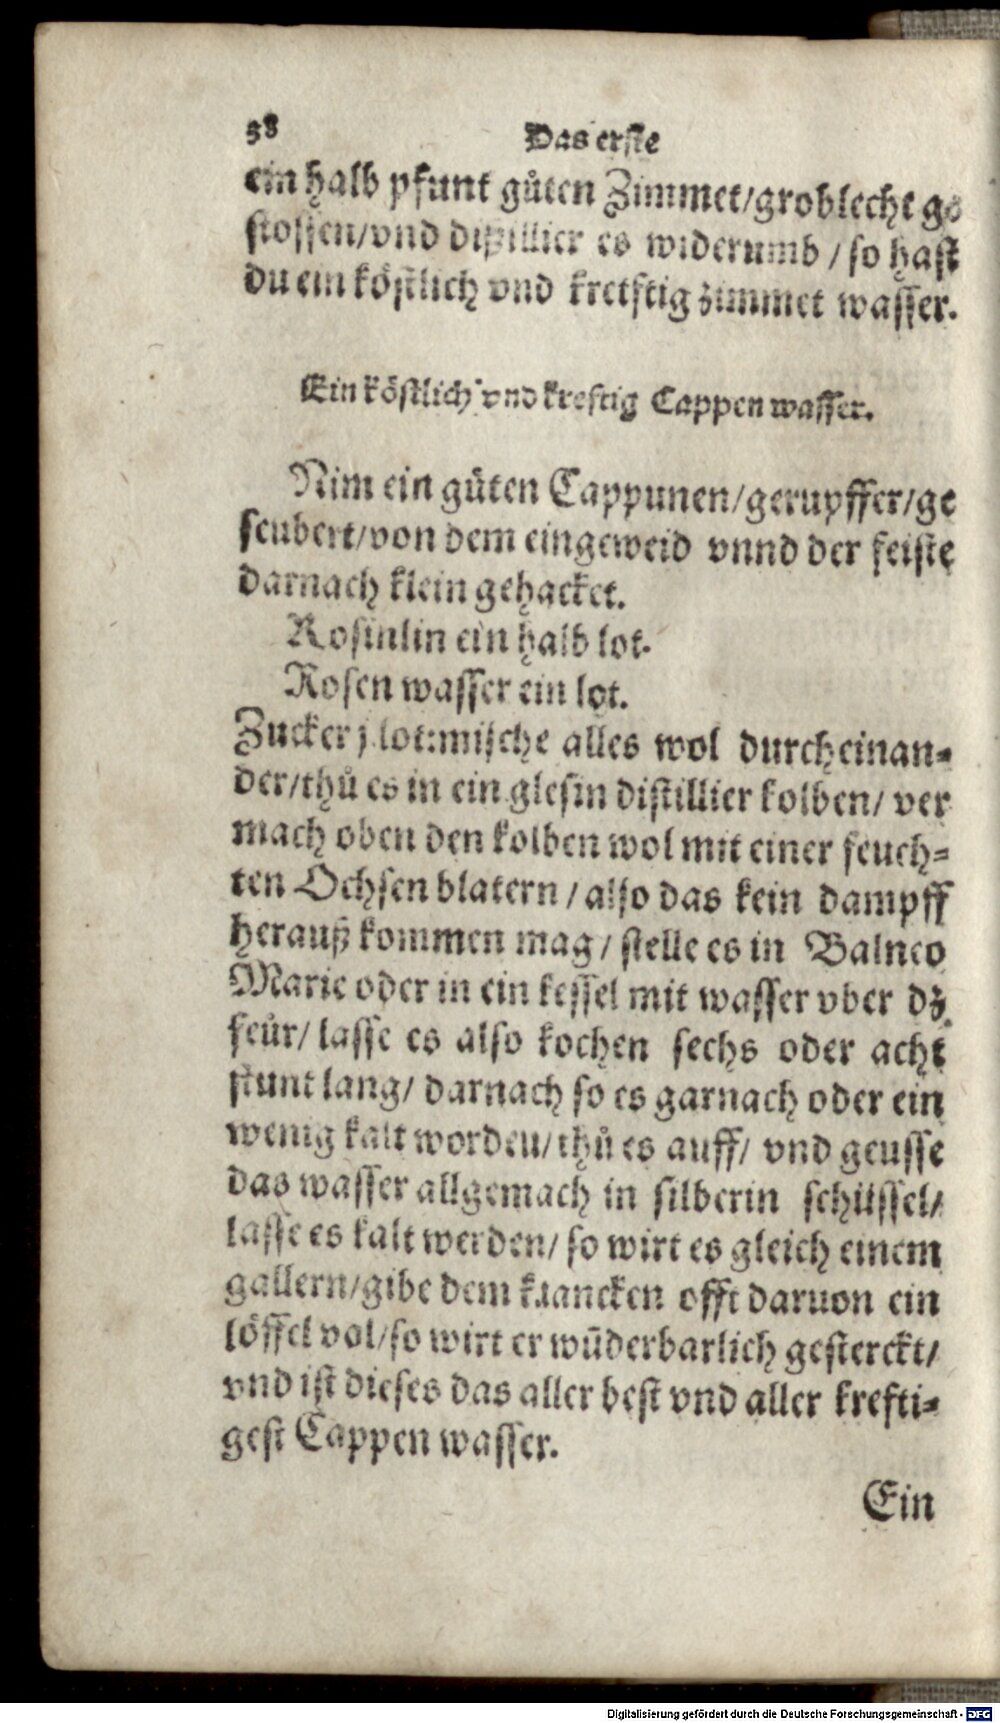 58 Das erste
ein halb pfunt gůten Zimmet/groblecht ge
stossen/vnd distillier es widerumb / so hast
du ein köstlich vnd kreftig zimmet wasser.
Ein köstlich vnd kreftig Cappen wasser.
Nim ein gůten Cappunen/gerupffer/ge
seubert/von dem eingeweid vnnd der feiste
darnach klein gehacket.
Rosinlin ein halb lot.
Rosen wasser ein lot.
Zucker j. lot:mische alles wol durch einan⸗
der/thů es in ein glesin distillier kolben/ ver
mach oben den kolben wol mit einer feuch⸗
ten Ochsen blatern / also das kein dampff
herauß kommen mag / stelle es in Balneo
Marie oder in ein kessel mit wasser vber dz
feür/ lasse es also kochen sechs oder acht
stunt lang/ darnach so es garnach oder ein
wenig kalt worden/thů es auff/ vnd geusse
das wasser allgemach in silberin schüssel/
lasse es kalt werden/ so wirt es gleich einem
gallern/gibe dem krancken offt daruon ein
löffel vol/so wirt er wūderbarlich gesterckt/
vnd ist dieses das aller best vnd aller krefti⸗
gest Cappen wasser.
Ein
Digitalisierung gefördert durch die Deutsche Forschungsgemeinschaft - DFG